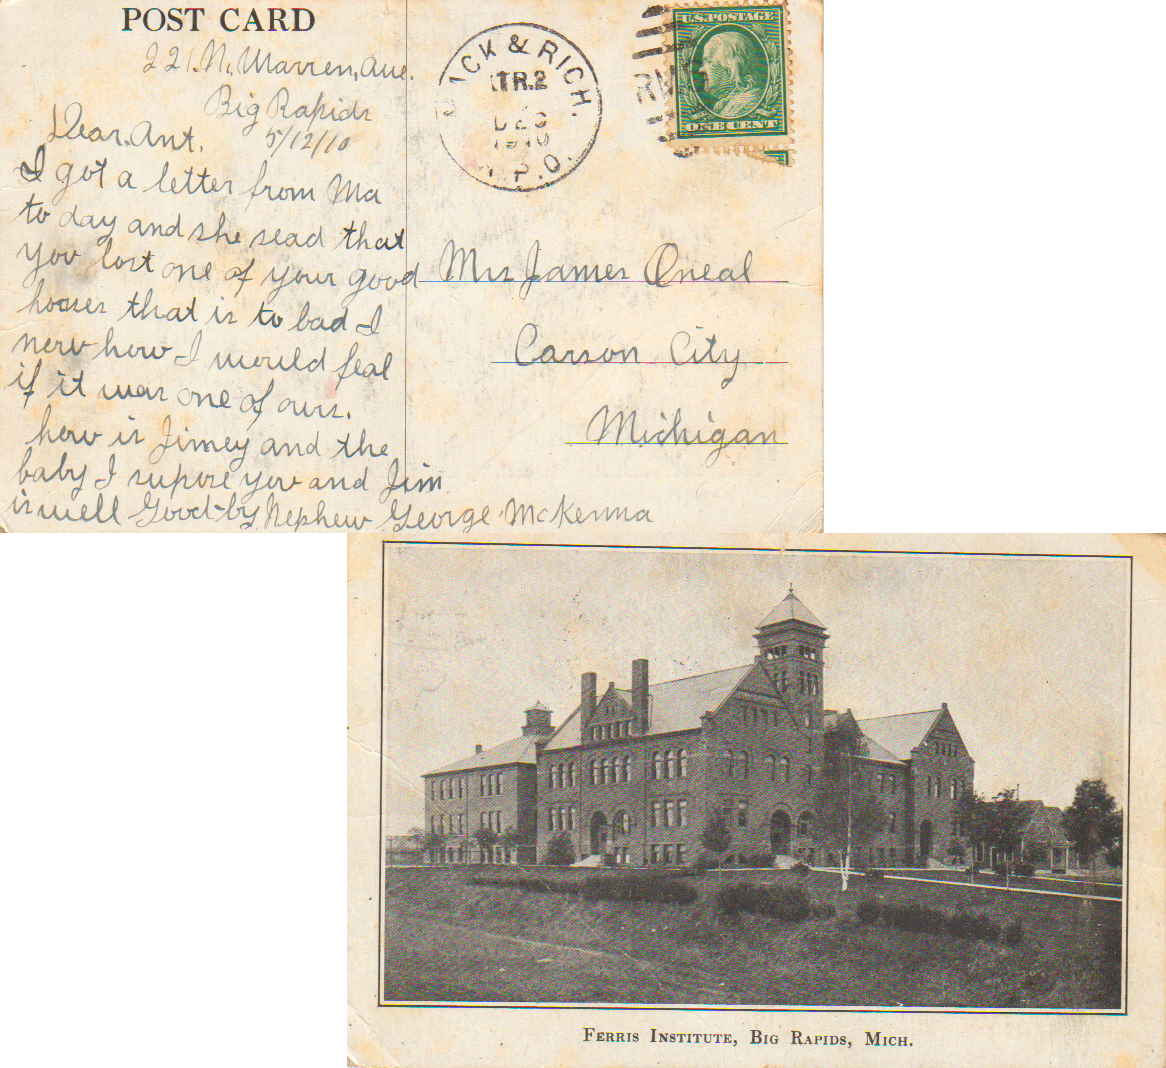 POST CARD
221. N. Warren, Ave.
Big Rapids
5/12/10
Dear. Ant.
I got a letter from Ma
to day and she sead that
you lost one of your good
hoases that is to bad I
now how I would feal
if it was one of ours.
how is Jimey and the
baby I supose you and Jim
is well Good-by Nephew George McKenna
ACK & RICH.
TR. 2
DEC
1910
R.P.O.
RM
U.S. POSTAGE
ONE CENT
Mrs James Oneal
Carson City
Michigan
FERRIS INSTITUTE, BIG RAPIDS, MICH.